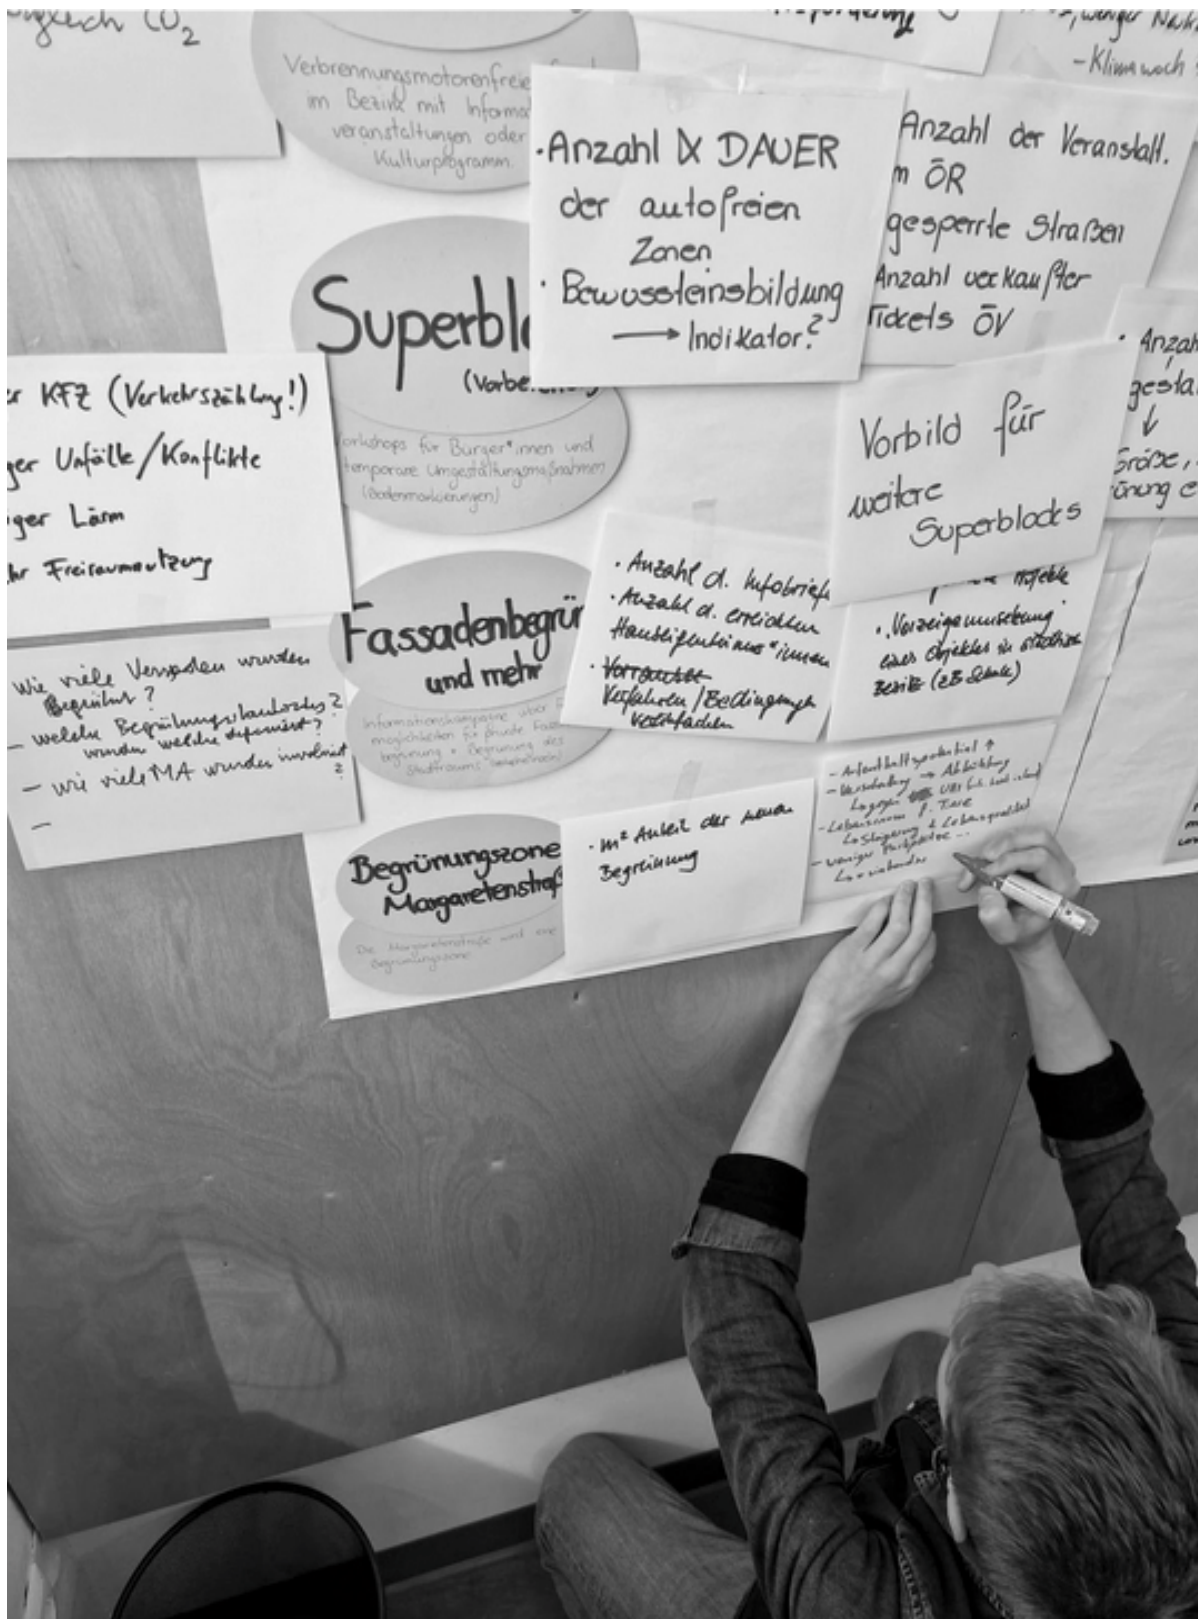 CO₂
Verbrennungsmotorenfreie
im Bezirk mit Informa
veranstaltungen oder
Kulturprogramm.
· Anzahl & DAUER
der autofreien
Zonen
· Bewussteinsbildung
→ Indikator?
weniger
- Klimawoch
Anzahl der Veranstalt.
m ÖR
gesperrte Straßen
Anzahl verkaufter
Tickets ÖV
· Anzah
gesta
↓
Größe,
Superblo
(Vorbe
orkshops für Bürger*innen und
temporäre Umgestaltungsmaßnahmen
(Bodenmarkierungen)
er KFZ (Verkehrszählung!)
ger Unfälle/Konflikte
ger Lärm
hr Freiraumnutzung
Vorbild für
weitere
Superblocks
Fassadenbegrün
und mehr
Informationskampagne über
möglichkeiten für private Fass
begrünung + Begrünung des
Stadtraums
· Anzahl d. Infobriefe
· Anzahl d. erreichten
Hauseigentümer*innen
· Verfahren/Bedingungen
vereinfachen
· Vorzeigeumsetzung
eines Objektes in
Bezirk (zB Schule)
wie viele wurden
Begrünt?
- welche
wurden welche
- wie viele MA wurden involviert
?
-
Begrünungszone
Margaretenstraß
Die Margaretenstraße wird eine
Begrünungszone
· m² Anteil der neuen
Begrünung
- Aufenthaltspotential ↑
- Verschattung → Abkühlung
- Lebensraum f. Tiere
↳ Steigerung d. Lebensqualität
- weniger Parkplätze ...